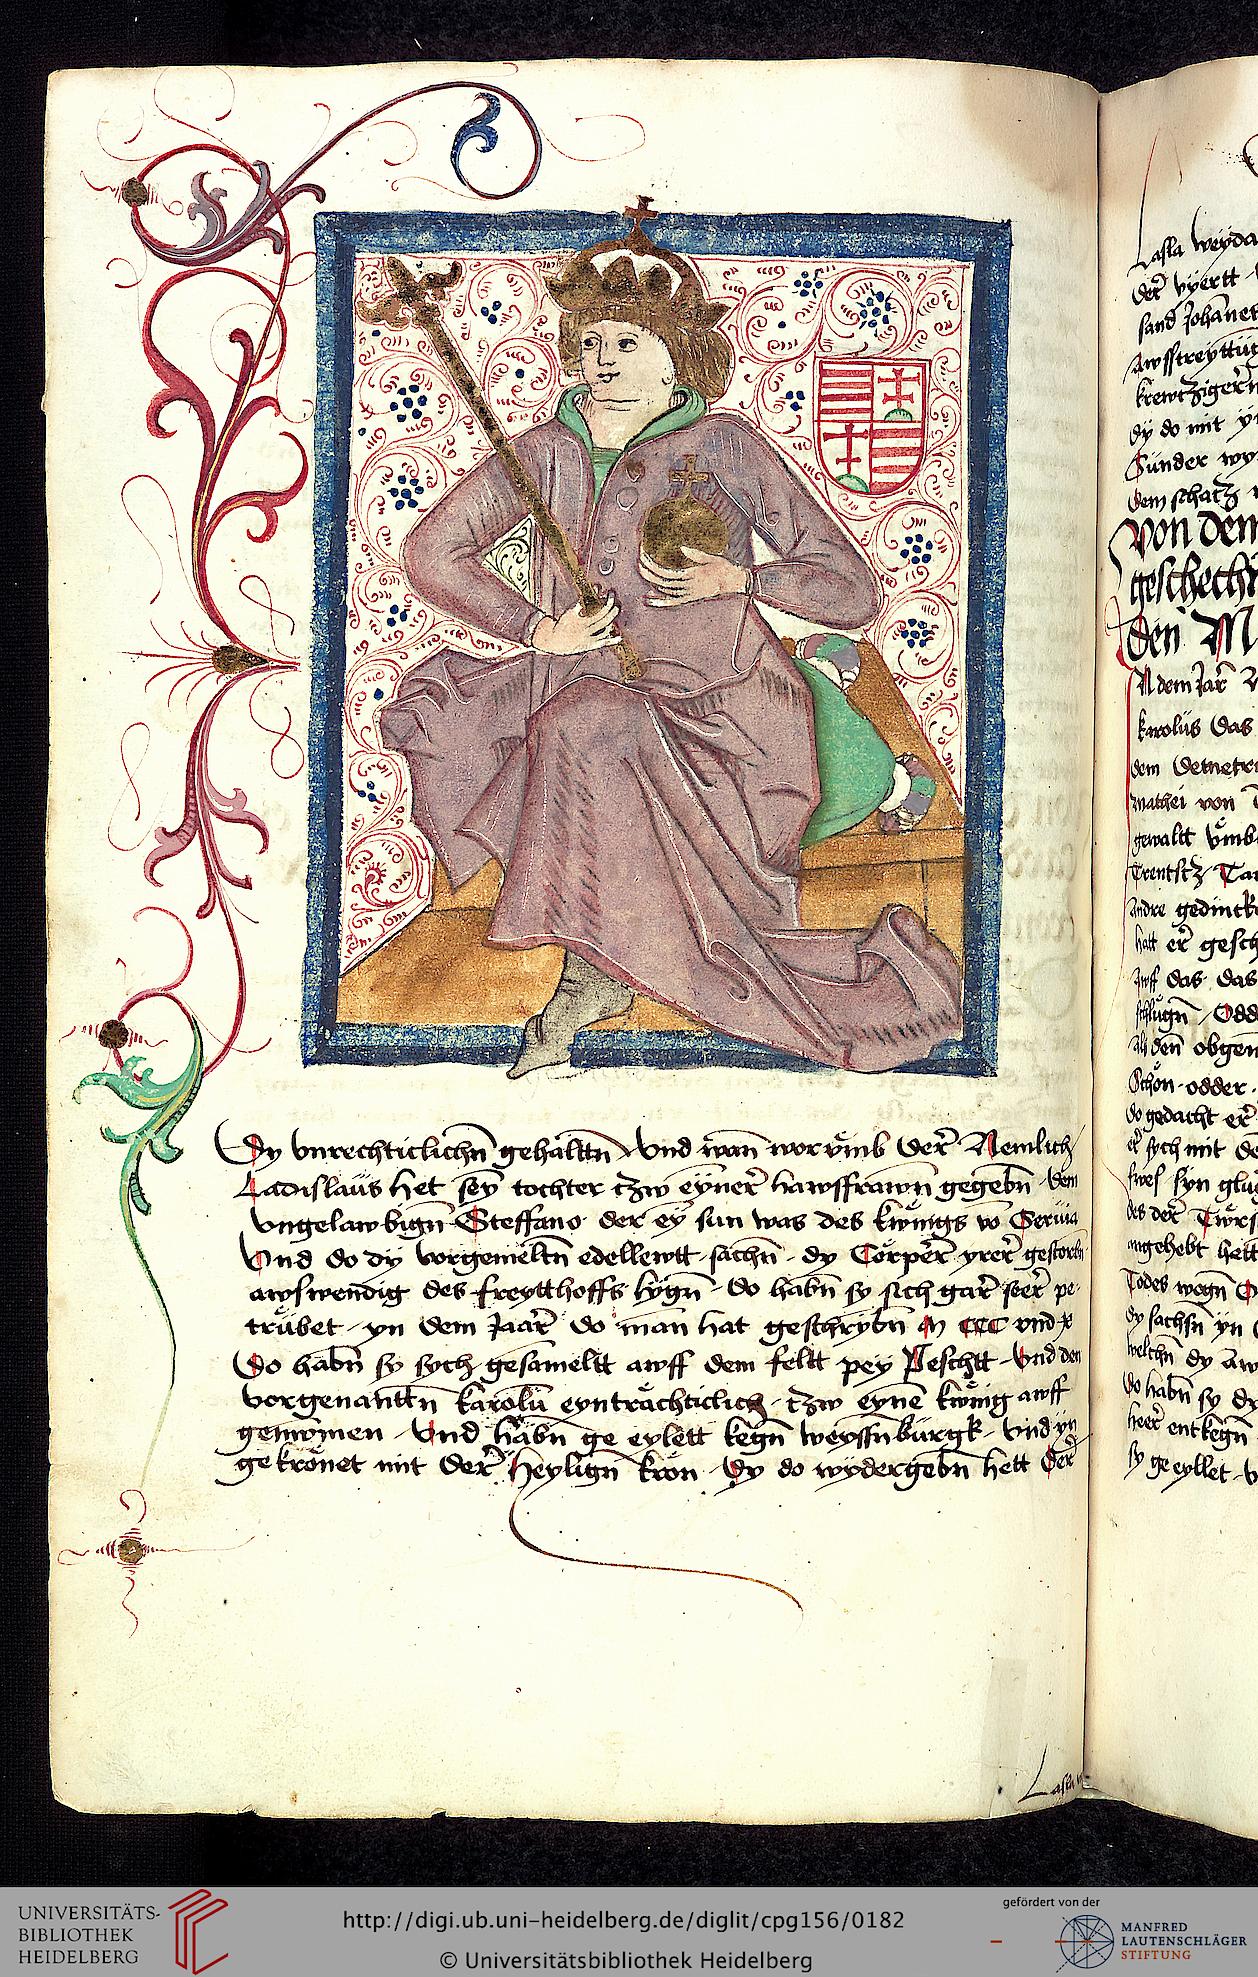 Dy vnrechticlichn̄ gehaltn̄ Vnd wan̄ worvmb Der̄ Nemlich
Ladislaus het sey tochter tzw eyner̄ hawsfrawn̄ gegebn̄ Dem
Vngelawbign̄ Steffano der ey sun was des kwnigs vō Servia
Vnd do dy vorgemeltn̄ edellewtt sachn̄ dy Corper̄ yrer̄ gestorbn̄
awswendig des freytthoffs lygn̄ do habn̄ sy sich gar̄ seer̄ pe
trubet yn dem Jaar̄ do man hat geschrybn̄ M CCC vnd x
Do habn̄ sy sych gesameltt awff dem feltt pey Peschtt Vnd den
vorgenanttn̄ karolū eyntrachticlich tzw eynē kwnig awff
genwmen Vnd habn̄ ge eylett kegn̄ weyssnburgk vnd yn
gekronet mit Der̄ heylign̄ kron Dy do wydergebn̄ hett Der̄
Lasla
Lasla weyda
der̄ vyertt
sand Johanet
awffstreyttug
dy do mit
Sunder wy
dem schatz
Von dem
geschech
den M
N dem Jar̄
karolus Das
dem
mathei von
gewaltt vmb
andre gedinck
hatt er̄ gesch
awff das das
Odd
den obgen
Schon odder
do gedacht er̄
er̄ sych mit de
syn glu
des der̄
angehebt hett
Todes wegn̄
dy sachsn̄ yn
welchn̄ dy aw
do habn̄ sy dy
heer̄ entkegn̄
sy ge eyllet
UNIVERSITÄTS-
BIBLIOTHEK
HEIDELBERG
http://digi.ub.uni-heidelberg.de/diglit/cpg156/0182
© Universitätsbibliothek Heidelberg
gefördert von der
MANFRED
LAUTENSCHLÄGER
STIFTUNG